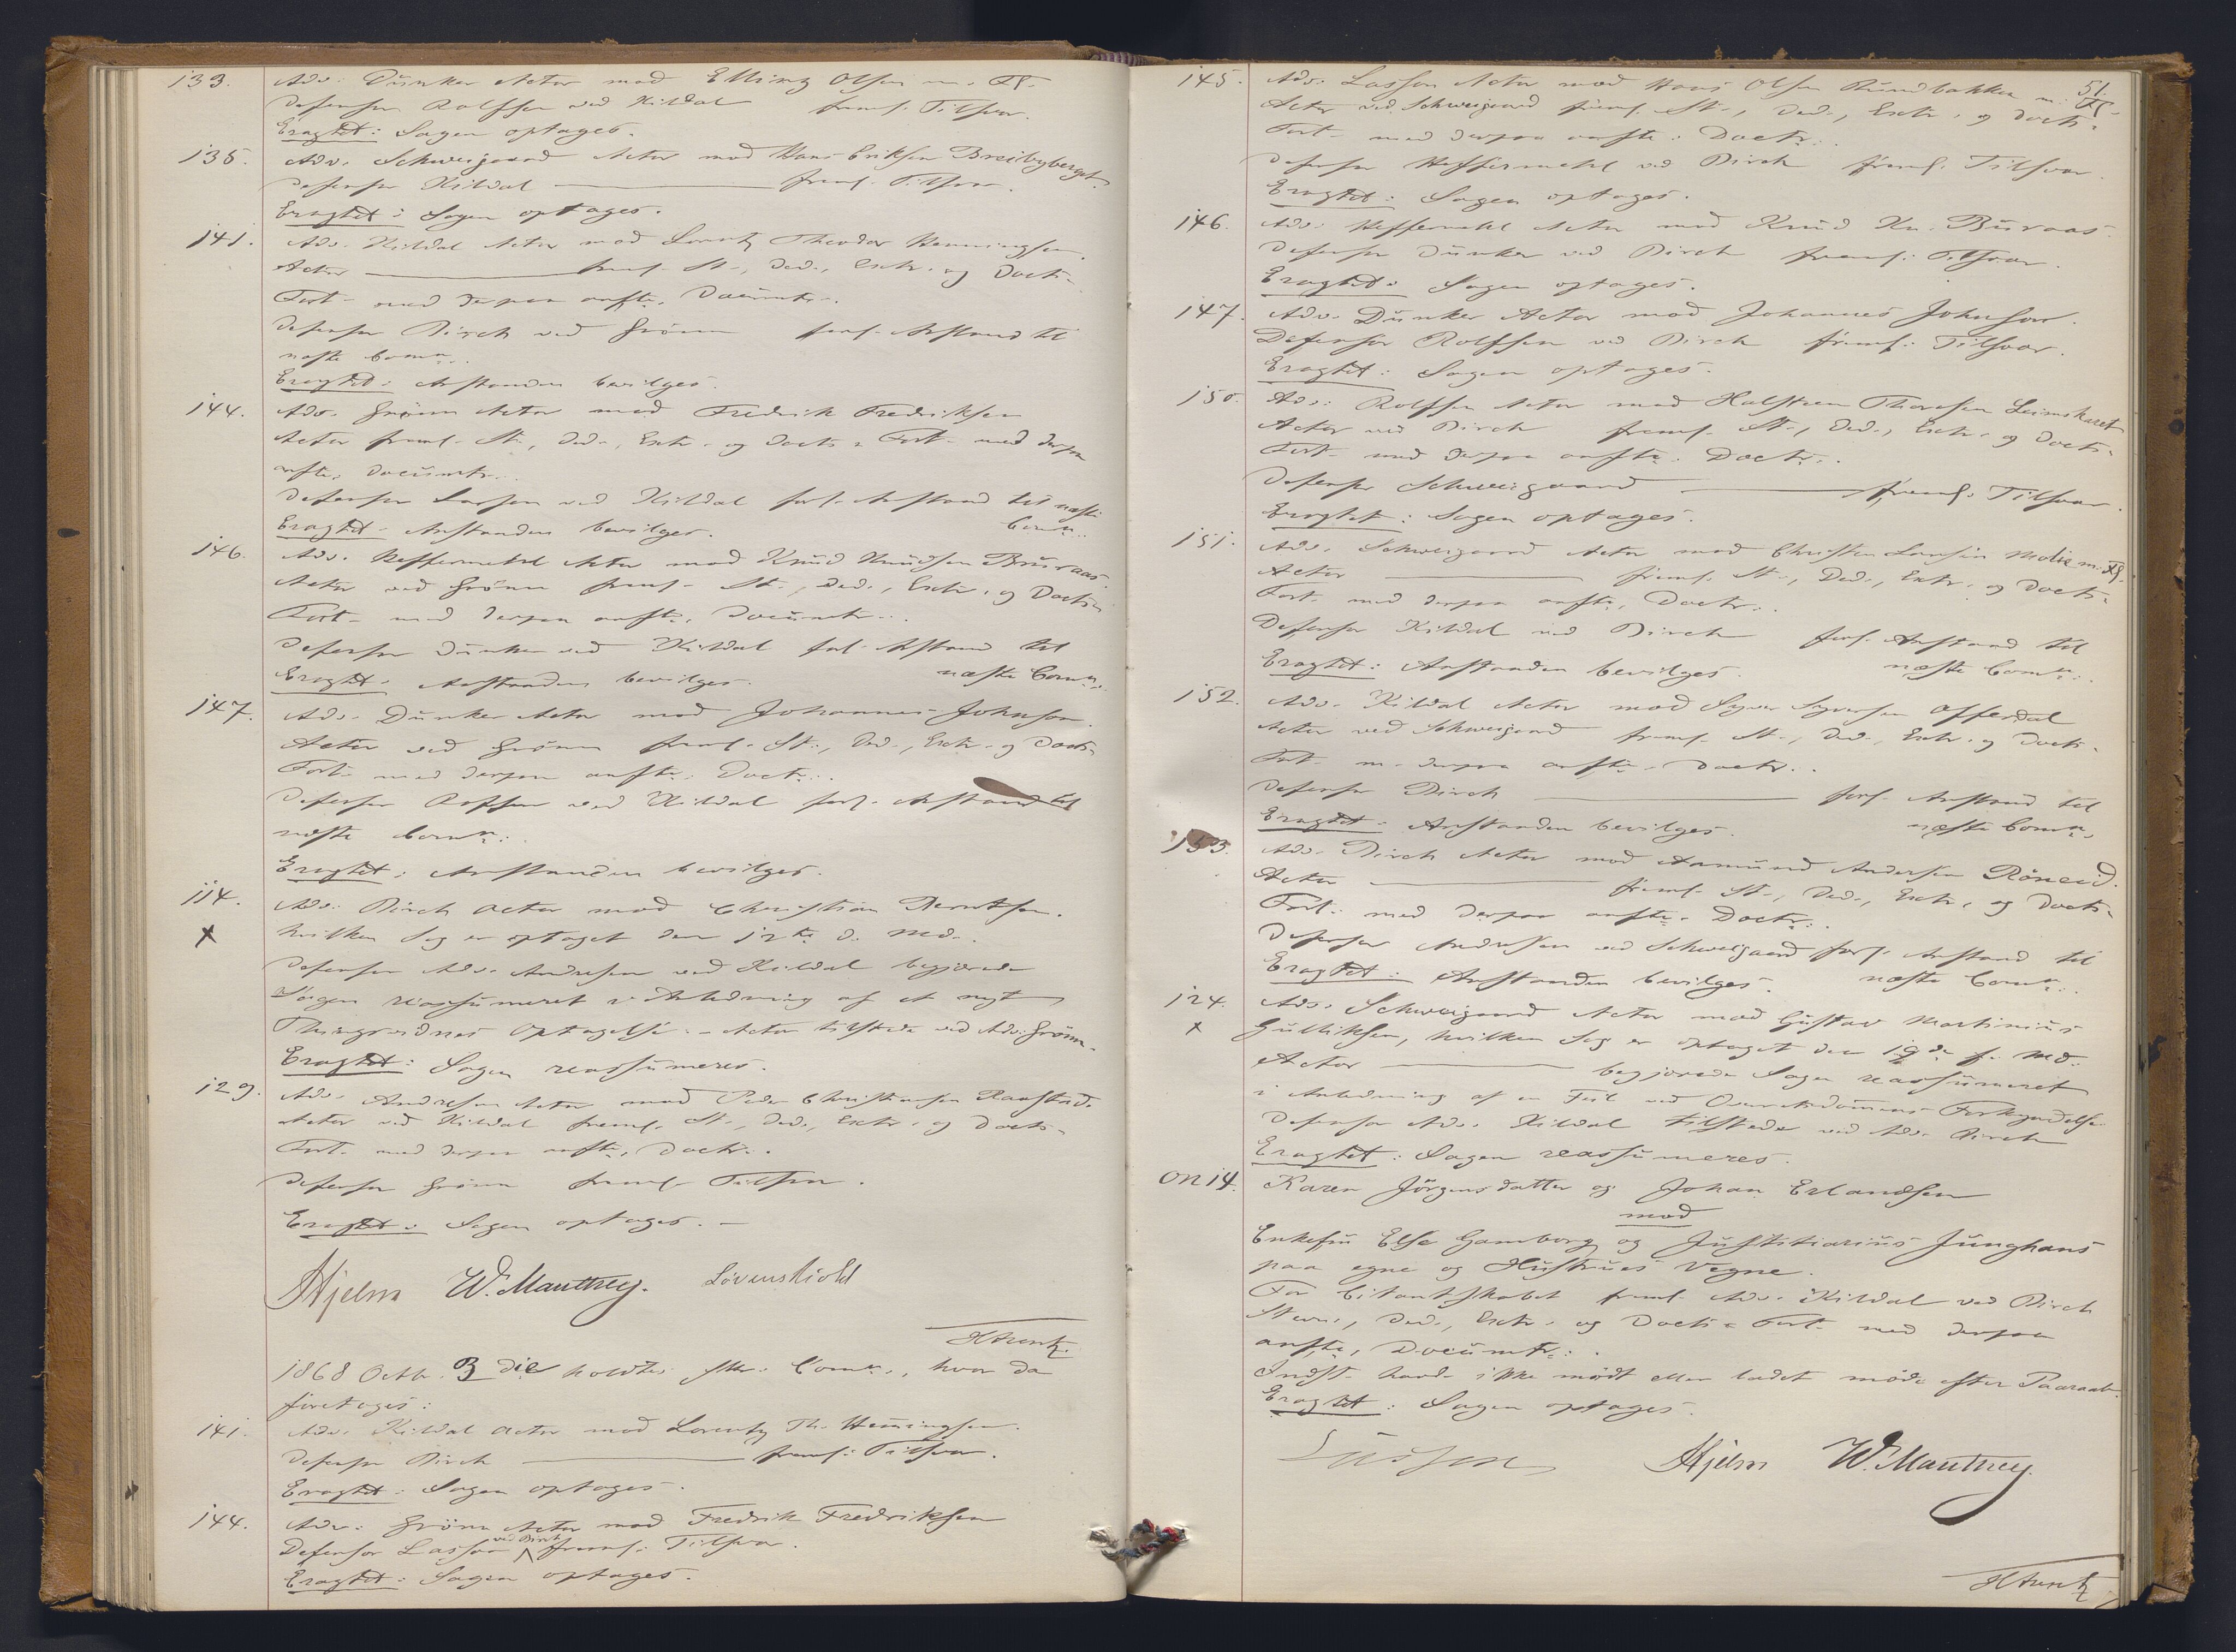 133. Adv. Dunker Actor mod Elling Olsen m. Fl.
Defensor Rolffsen ved Kildal freml. Tilsvar.
Eragtet: Sagen optages.
135. Adv. Schweigaard Actor mod Hans Eriksen Breibyberget.
Defensor Kildal freml. Tilsvar.
Eragtet: Sagen optages.
141. Adv. Kildal Actor mod Lorentz Theodor Henningsen.
Actor freml. St., Ded., Extr. og Docts
Fort. med derpaa anfte. Documtr.
Defensor Birch ved Grönn forl. Anstand til
næste Comn.
Eragtet: Anstanden bevilges.
144. Adv. Grönn Actor mod Fredrik Fredriksen
Actor freml. St., Ded., Extr. og Docts Fort. med derpaa
anfte. Documtr.
Defensor Lasson ved Kildal forl. Anstand til næste
Eragtet: Anstanden bevilges. Comn.
146. Adv. Heffermehl Actor mod Knud Knudsen Buraas.
Actor ved Grönn freml. St., Ded., Extr. og Docts
Fort. med derpaa anfte. Documtr.
Defensor Dunker ved Kildal forl. Anstand til
Eragtet: Anstanden bevilges. næste Comn.
147. Adv. Dunker Actor mod Johannes Johnson.
Actor ved Grönn freml. St., Ded., Extr. og Docts
Fort. med derpaa anfte. Doctr.
Defensor Rolffsen ved Kildal forl. Anstand til
næste Comn.
Eragtet: Anstanden bevilges.
114. Adv. Birch Actor mod Christian Berntsen.
x hvilken Sag er optaget den 12te d. Md.
Defensor Adv. Andresen ved Kildal begjærede
Sagen reassumeret i Anledning af et nyt
Thingsvidnes Optagelse. - Actor tilstede ved Adv. Grönn.
Eragtet: Sagen reassumeres.
129. Adv. Andresen Actor mod Peder Christensen
Actor ved Kildal freml. St., Ded., Extr. og Docts
Fort. med derpaa anfte. Doctr.
Defensor Grönn freml. Tilsvar.
Eragtet: Sagen optages. -
Hjelm W. Manthey. Lövenskiold
1868 Octb. 3 die holdtes Comn., hvor da
foretoges:
141. Adv. Kildal Actor mod Lorentz Th. Henningsen.
Defensor Birch freml. Tilsvar.
Eragtet: Sagen optages.
144. Adv. Grönn Actor mod Fredrik Fredriksen
Defensor Lasson ved Birch freml. Tilsvar.
Eragtet: Sagen optages.
51.
145. Adv. Lasson Actor mod Hans Olsen Rundbakken m. Fl.
Actor ved Schweigaard freml. St., Ded., Extr. og Docts
Fort. med derpaa anfte. Doctr.
Defensor Heffermehl ved Birch freml. Tilsvar.
Eragtet: Sagen optages.
146. Adv. Heffermehl Actor mod Knud Kn. Buraas.
Defensor Dunker ved Birch freml. Tilsvar.
Eragtet: Sagen optages.
147. Adv. Dunker Actor mod Johannes Johnson.
Defensor Rolffsen ved Birch freml. Tilsvar.
Eragtet: Sagen optages.
150. Adv. Rolffsen Actor mod Halsten Thoresen Leimskaret
Actor ved Birch freml. St., Ded., Extr. og Docts
Fort. med derpaa anfte. Doctr.
Defensor Schweigaard freml. Tilsvar.
Eragtet: Sagen optages.
151. Adv. Schweigaard Actor mod Christen Larsen Molie m. Fl.
Actor freml. St., Ded., Extr. og Docts
Fort. med derpaa anfte. Doctr.
Defensor Kildal ved Birch forl. Anstand til
Eragtet: Anstanden bevilges. næste Comn.
152. Adv. Kildal Actor mod Syver Syversen Offerdal
Actor ved Schweigaard freml. St., Ded., Extr. og Docts
Fort. m. derpaa anfte. Doctr.
Defensor Birch forl. Anstand til
Eragtet: Anstanden bevilges. næste Comn.
153. Adv. Birch Actor mod Aamund Andersen Röneid.
Actor freml. St., Ded., Extr. og Docts
Fort. med derpaa anfte. Doctr.
Defensor Andresen ved Schweigaard forl. Anstand til
Eragtet: Anstanden bevilges. næste Comn.
124. Adv. Schweigaard Actor mod Gustav Martinius
x Gulliksen, hvilken Sag er optaget den 19de f. Md.
Actor begjærede Sagen reassumeret
i Anledning af en Feil ved Overretsdommens Forkyndelse.
Defensor Adv. Kildal tilstede ved Adv. Birch
Eragtet: Sagen reassumeres.
ON 14. Karen Jörgensdatter og Johan Erlandsen
mod
Enkefru Else Gamborg og Justitiarius Junghans
paa egne og Hustrues Vegne.
For Citantskabet freml. Adv. Kildal ved Birch
Stevn., Ded., Extr. og Docts Fort. med derpaa
anfte. Documtr.
Indst. havde ikke mödt eller ladet möde efter Paaraab.
Eragtet: Sagen optages.
Lasson Hjelm W. Manthey.